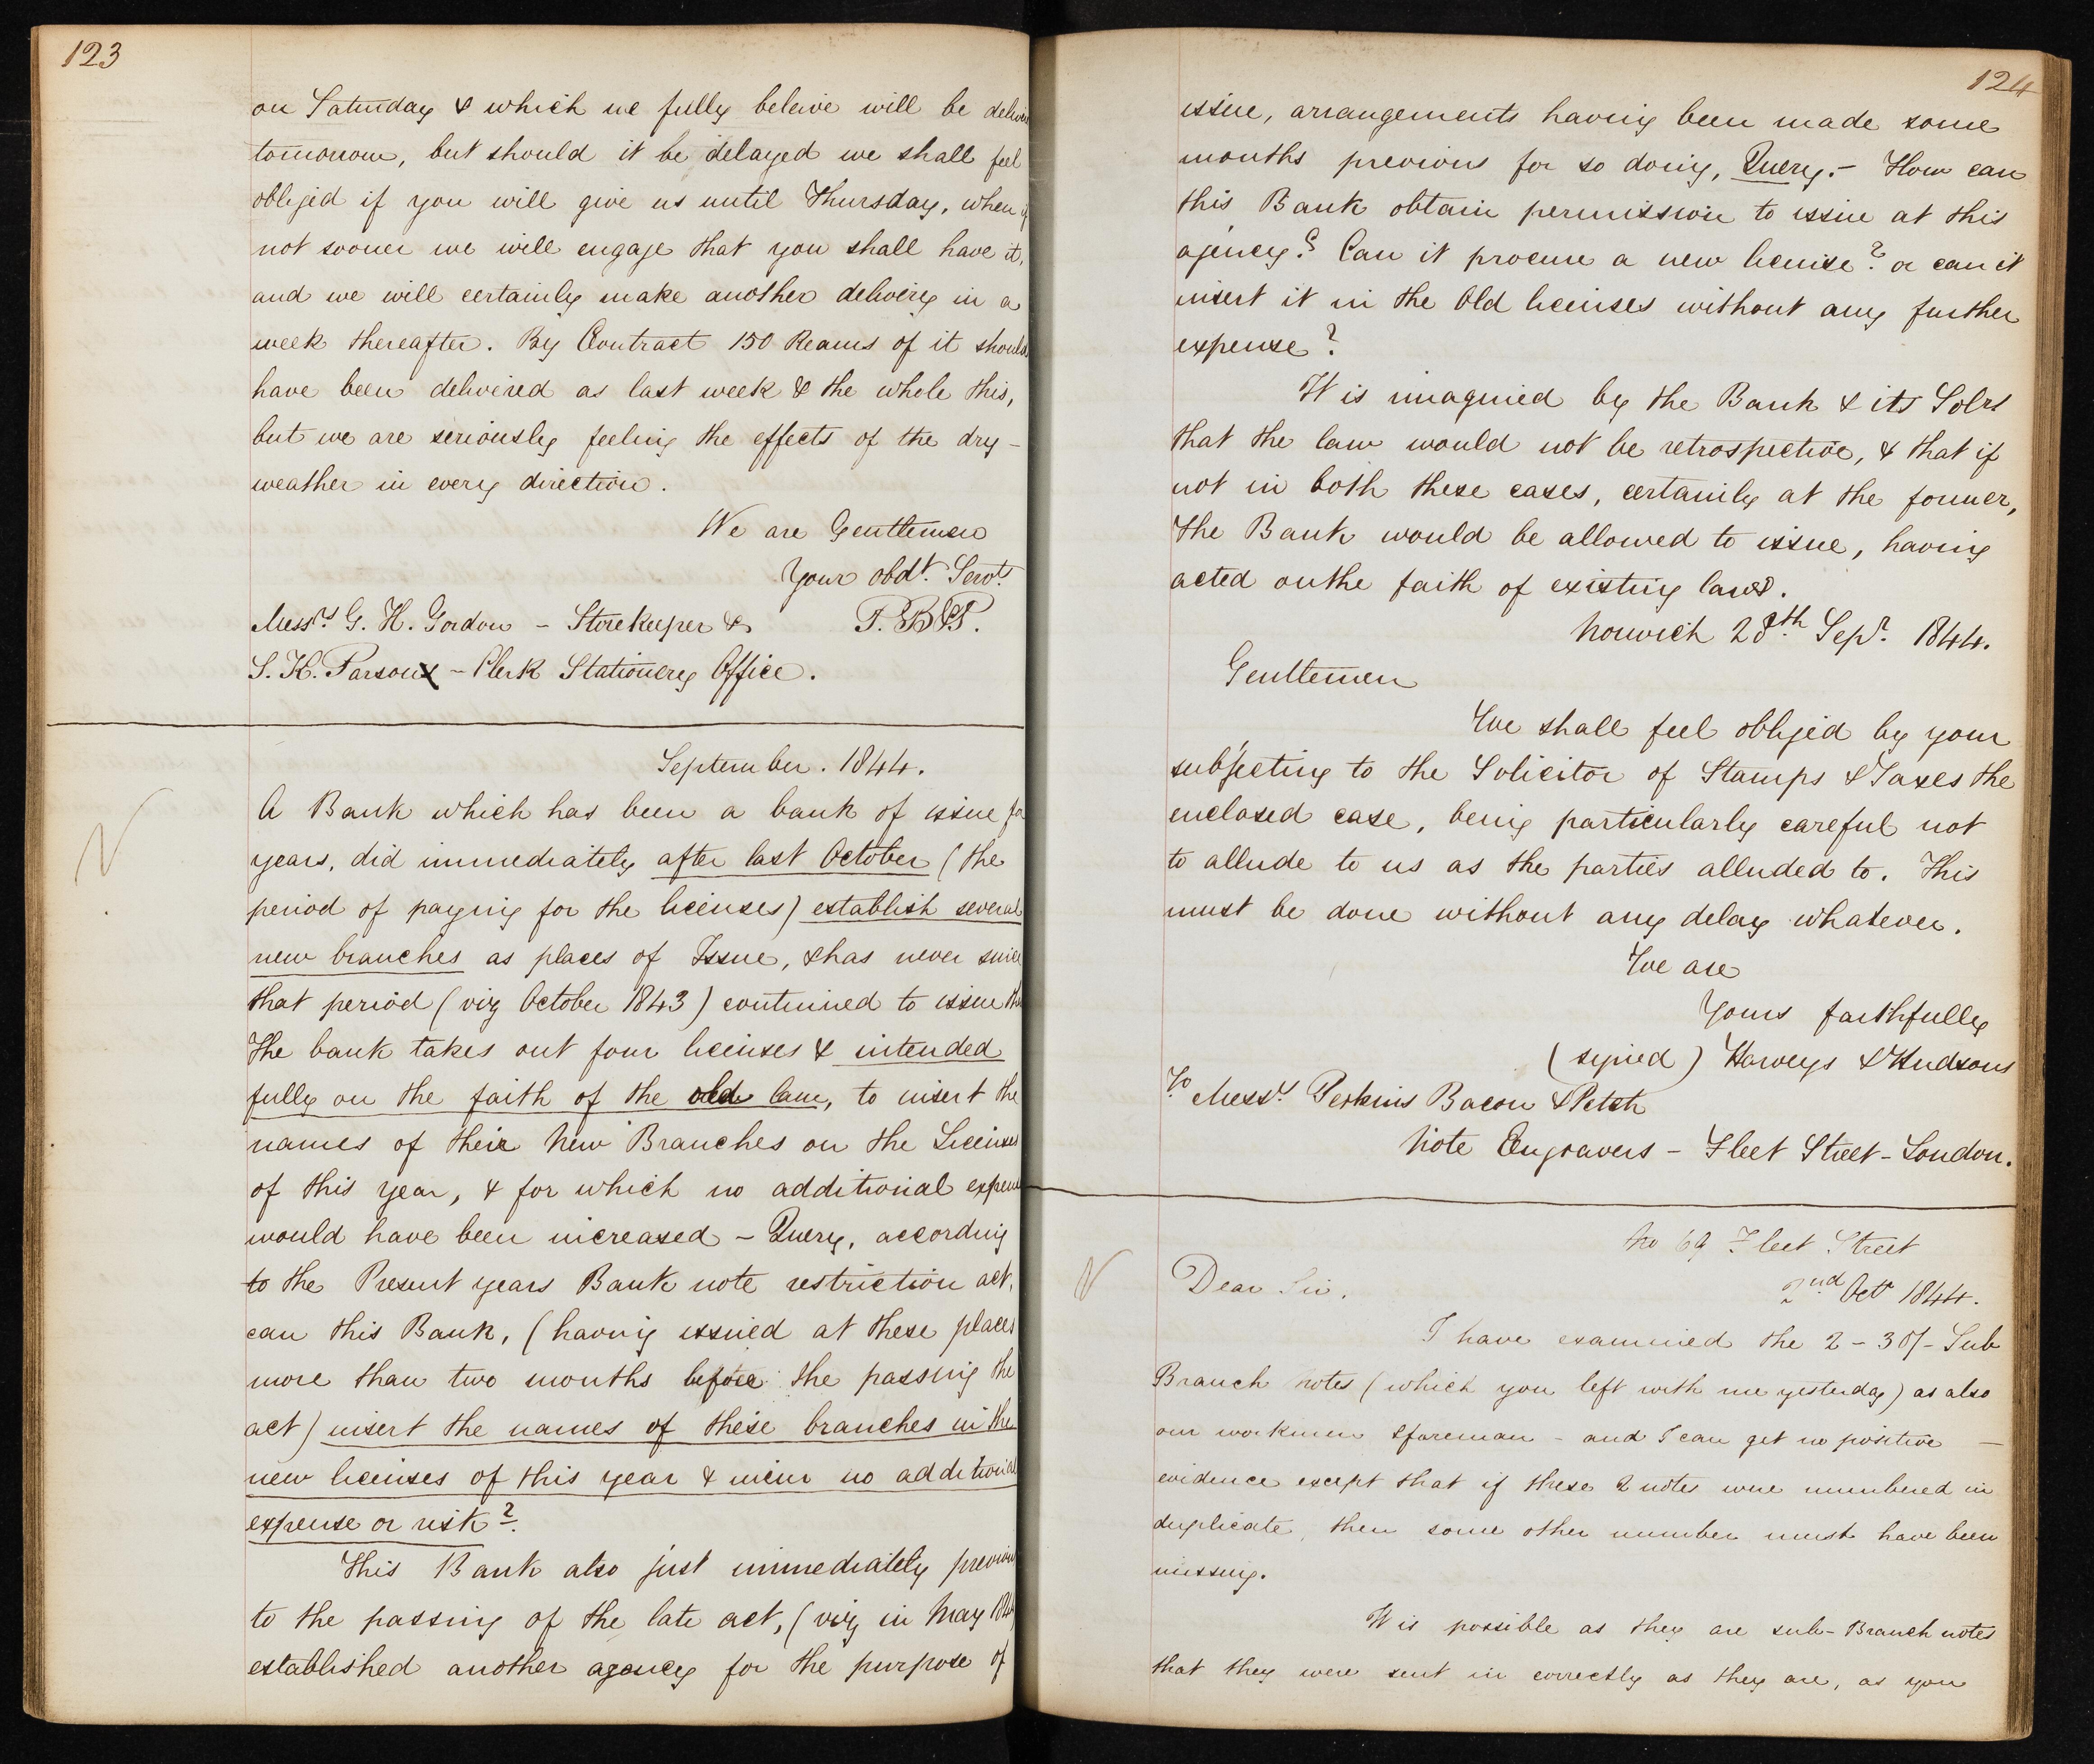 123
on Saturday & which we fully beleive will be deliver
tomorrow, but should it be delayed we shall feel
obliged if you will give us until Thursday, when if
not sooner we will engage that you shall have it,
and we will certainly make another delivery in a
week thereafter. By Contract 150 Reams of it should
have been delivered as last week & the whole this,
but we are seriously feeling the effects of the dry-
weather in every direction.
We are Gentlemen
Your obdt. Servts
Messrs G. H. Gordon - Storekeeper & P. B & P.
S. H. Parson - Clerk Stationery Office.
September. 1844.
A Bank which has been a bank of issue for
years, did immediately after last October (the
period of paying for the licenses) establish several
new branches as places of Issue, & has never since
that period (viz October 1843) continued to issue
The bank takes out four licenses & intended
fully on the faith of the old law, to insert the
names of their New Branches on the Licenses
of this year, & for which no additional expense
would have been increased - Query, according
to the Present years Bank note restriction act,
can this Bank, (having issued at these places
more than two months before the passing the
act) insert the names of these branches in the
new licenses of this year & incur no additional
expense or risk?
This Bank also just immediately previous
to the passing of the late act, (viz in May 1844
established another agency for the purpose of
124
issue, arrangements having been made some
months previous for so doing, Query.- How can
this Bank obtain permission to issue at this
agency? Can it procure a new license? or can it
insert it in the Old licenses without any further
expense?
It is imagined by the Bank & its Solrs
that the law would not be retrospective, & that if
not in both these cases, certainly at the former,
the Bank would be allowed to issue, having
acted on the faith of existing laws.
Norwich 28th Sepr. 1844.
Gentlemen
We shall feel obliged by your
subjecting to the Solicitor of Stamps & Taxes the
enclosed case, being particularly careful not
to allude to us as the parties alluded to. This
must be done without any delay whatever.
We are
Yours faithfully
(signed) Harveys & Hudsons
To Messrs Perkins Bacon & Petch
Note Engravers - Fleet Street - London.
No 69 Fleet Street
2nd Octr 1844.
Dear Sir,
I have examined the 2 - 30/- Sub
Branch notes (which you left with me yesterday) as also
our workmen & foreman - and I can get no positive -
evidence except that if these 2 notes were numbered in
duplicate, then some other number must have been
missing.
It is possible as they are sub-Branch notes
that they were sent in correctly as they are, as you